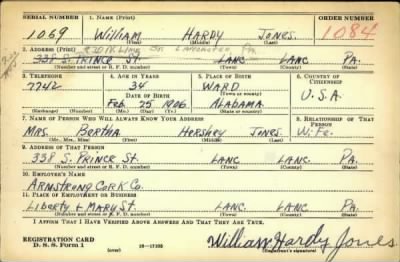 SERIAL NUMBER 1. NAME (Print) ORDER NUMBER
1069 William HARDY JONES. 1084
(First) (Middle) (Last)
2. ADDRESS (Print)
338 S. PRINCE St. LANC LANC PA.
(Number and street or R. F. D. number) (Town) (County) (State)
3. TELEPHONE 4. AGE IN YEARS 5. PLACE OF BIRTH 6. COUNTRY OF CITIZENSHIP
7742 34 WARD
DATE OF BIRTH (Town or county)
Feb. 25 1906 ALABAMA. U.S.A.
(Exchange) (Number) (Mo.) (Day) (Yr.) (State or country)
7. NAME OF PERSON WHO WILL ALWAYS KNOW YOUR ADDRESS 8. RELATIONSHIP OF THAT PERSON
MRS. BERTHA HERSHEY JONES. WiFe.
(Mr., Mrs., Miss) (First) (Middle) (Last)
9. ADDRESS OF THAT PERSON
338 S. PRINCE St. LANC LANC. PA.
(Number and street or R. F. D. number) (Town) (County) (State)
10. EMPLOYER'S NAME
ARMSTRONG CORK Co.
11. PLACE OF EMPLOYMENT OR BUSINESS
LIBERTY & MARY St. LANC LANC. PA.
(Number and street or R. F. D. number) (Town) (County) (State)
I AFFIRM THAT I HAVE VERIFIED ABOVE ANSWERS AND THAT THEY ARE TRUE.
REGISTRATION CARD
D. S. S. Form 1 (over) 16—17105 William Hardy Jones
(Registrant's signature)